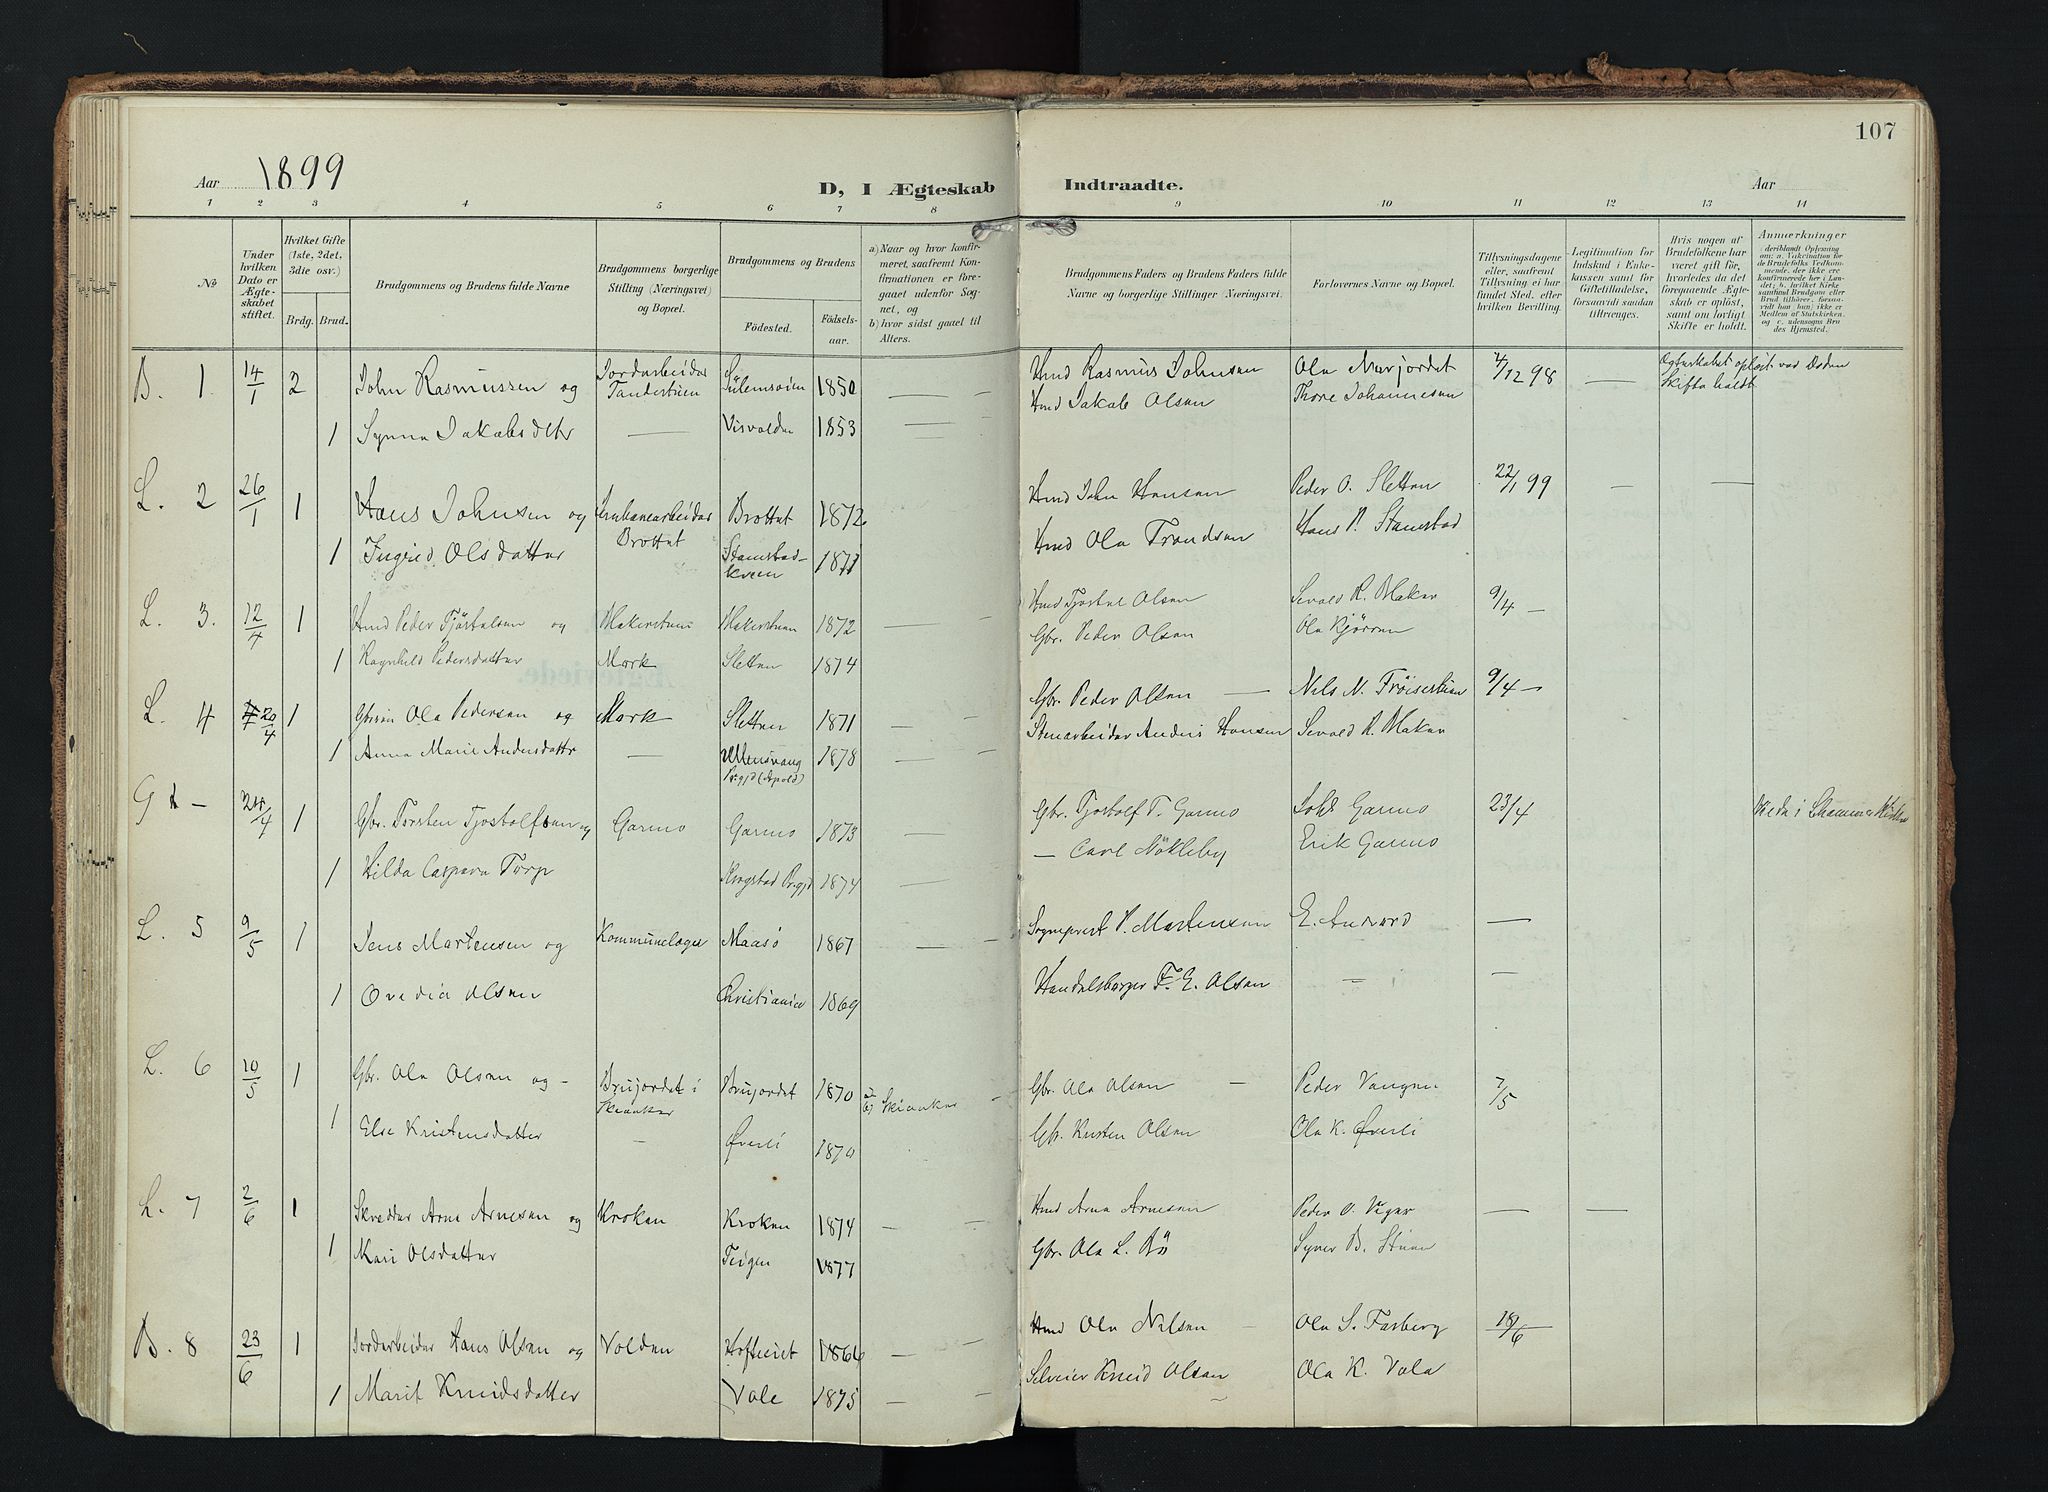 107
Aar 1899
D, I Ægteskab Indtraadte.
Aar
1 2 3 4 5 6 7 8 9 10 11 12 13 14
№
Under hvilken Dato er Ægteskabet stiftet.
Hvilket Gifte (1ste, 2det, 3die osv.)
Brdg. Brud.
Brudgommens og Brudens fulde Navne
Brudgommens borgerlige Stilling (Næringsvei) og Bopæl.
Brudgommens og Brudens
Fødested.
Fødselsaar.
a) Naar og hvor konfirmeret, saafremt Konfirmationen er foregaaet udenfor Sognet, og
b) hvor sidst gaaet til Alters.
Brudgommens Faders og Brudens Faders fulde Navne og borgerlige Stillinger (Næringsvei.
Forlovernes Navne og Bopæl.
Tillysningsdagene eller, saafremt Tillysning ei har fundet Sted, efter hvilken Bevilling.
Legitimation for Indskud i Enkekassen samt for Giftetilladelse, forsaavidt saadan tiltrænges.
Hvis nogen af Brudefolkene har været gift før, hvorledes da det foregaaende Ægteskab er opløst, samt om lovligt Skifte er holdt.
Anmærkninger
B. 1. 14/1 2 John Rasmussen og Jordarbeider Sulemsoien 1850 — Hmd Rasmus Johnsen Ola Murjordet 4/12 98 — Egteskabet opløst ved Døden
Hmd Jakob Olsen Thore Johannesen Skifte holdt
1 Synna Jakobsdtr — Visvolden 1853 —
L. 2 26/1 1 Hans Johnsen og Jernbanearbeider Brottet 1872 Hmd John Hansen Peder O. Sletten 22/1 99 — —
Brottet
1 Ingrid Olsdatter Stamstad- 1871 Hmd Ola Trondsen Hans P. Stamstad
kvern
L. 3. 12/4 1 Hmd Peder Tjøstelsen og Makerstuen Makerstuen 1872 — Hmd Tjostel Olsen Sevald R. Maker 9/4 —
Gbr. Peder Olsen Ola Kjørren
1 Ragnhild Pedersdatter Mork Sletten 1874
L. 4 20/4 1 Gbrsøn Ola Pedersen og Mork Sletten 1871 — Gbr. Peder Olsen — Nils N. Frøisestuen 9/4 —
1 Anna Marie Andersdattr — Ullensvang 1878 — Stenarbeider Anders Hansen Sevald R. Maker
Prgjd
G — /4 1 Gbr. Torsten Tjostolfsen og Garmo Garmo 1873 — Gbr. Tjostolf T. Garmo Garmo 23/4
— Carl Nökleby Erik Garmo
1 Hilda Caspara Torp Krogstad Prgjd 1874 —
L. 5 9/5 1 Jens Martensen og Kommunelæge Maasö 1867 — Sogneprest P. Martensen E. —
1 Ovedia Olsen Christiania 1869 Handelsborger F. E. Olsen — —
L. 6 10/5 1 Gbr. Ola Olsen og — Brujordet i Brujordet 1870 Skiaaker — Gbr. Ola Olsen — Peder Vangen 7/5
Skiaaker
1 Else Kristensdatter — Øverli 1870 Gbr. Kristen Olsen Ola K. Øverli
L. 7 2/6 1 Skrædder Arne Arnesen og Kroken Kroken 1874 — — Hmd Arne Arnesen Peder O. — —
1 Kari Olsdatter Teigen 1877 Gbr. Ola L. Bö Syver B. Stuen
B. 8 23/6 1 Jordarbeider Hans Olsen og Volden Hoftuiet 1866 — Hmd Ola Nilsen — Ola S. Forberg 18/6
1 Marit Knudsdatter Vole 1875 — — Selveier Knud Olsen Ola K. Vole